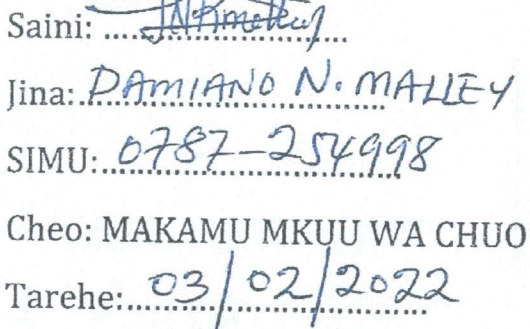 Saini:
Jina: DAMIANO N. MALLEY
SIMU: 0787-254998
Cheo: MAKAMU MKUU WA CHUO
Tarehe: 03/02/2022